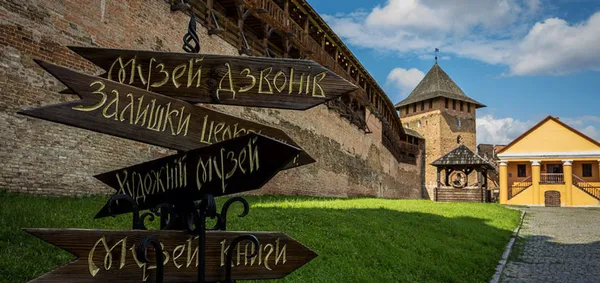 Музей дзвонів
Залишки церкви
Художній музей
Музей книги